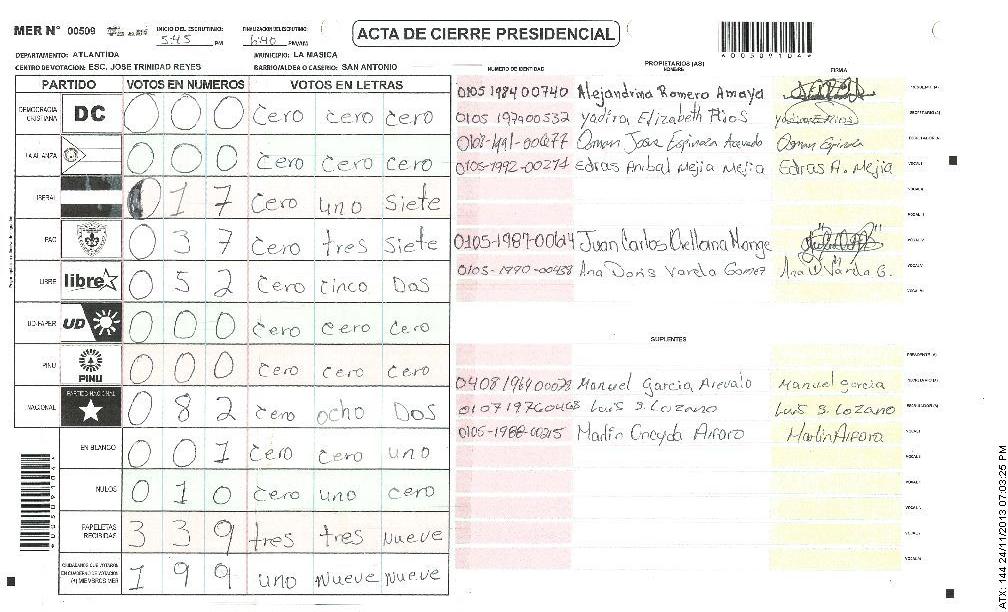 MER N° 00509
INICIO DEL ESCRUTINIO: 5:45 PM
FINALIZACION DEL ESCRUTINIO: 6:40 PM/AM
ACTA DE CIERRE PRESIDENCIAL
DEPARTAMENTO: ATLANTIDA
MUNICIPIO: LA MASICA
CENTRO DE VOTACION: ESC. JOSE TRINIDAD REYES
BARRIO/ALDEA O CASERIO: SAN ANTONIO
PARTIDO VOTOS EN NUMEROS VOTOS EN LETRAS
DEMOCRACIA CRISTIANA DC 0 0 0 Cero cero cero
LA ALIANZA 0 0 0 Cero cero cero
LIBERAL 0 1 7 Cero uno Siete
PAC 0 3 7 Cero tres Siete
LIBRE libre 0 5 2 Cero cinco Dos
UD-FAPER UD 0 0 0 cero cero cero
PINU PINU 0 0 0 cero cero cero
NACIONAL PARTIDO NACIONAL 0 8 2 cero ocho Dos
EN BLANCO 0 0 1 cero cero uno
NULOS 0 1 0 cero uno cero
PAPELETAS RECIBIDAS 3 3 9 tres tres nueve
CIUDADANOS QUE VOTARON EN CUADERNO DE VOTACION (+) MIEMBROS MER 1 9 9 uno Nueve Nueve
PROPIETARIOS (AS)
NUMERO DE IDENTIDAD NOMBRE FIRMA
0105 1984 00740 Alejandrina Romero Amaya
0105 1974 00532 Yadira Elizabeth Rios
Osman Jose Espinoza Acevedo Osman Espinoza
0105-1992-00274 Edras Anibal Mejia Mejia Edras A. Mejia
0105-1987-00614 Juan Carlos Orellana Monge
0105-1990-00458 Ana Doris Varela Gomez Ana D Varela G.
SUPLENTES
0408 1964 00078 Manuel Garcia Arevalo Manuel garcia
0107 1976 0468 Luis S. Lozano Luis S. Lozano
0105-1988-00215 Marlin Oneyda Alfaro Marlin Alfaro
*00509104*
ATX: 144 24/11/2013 07:03:25 PM